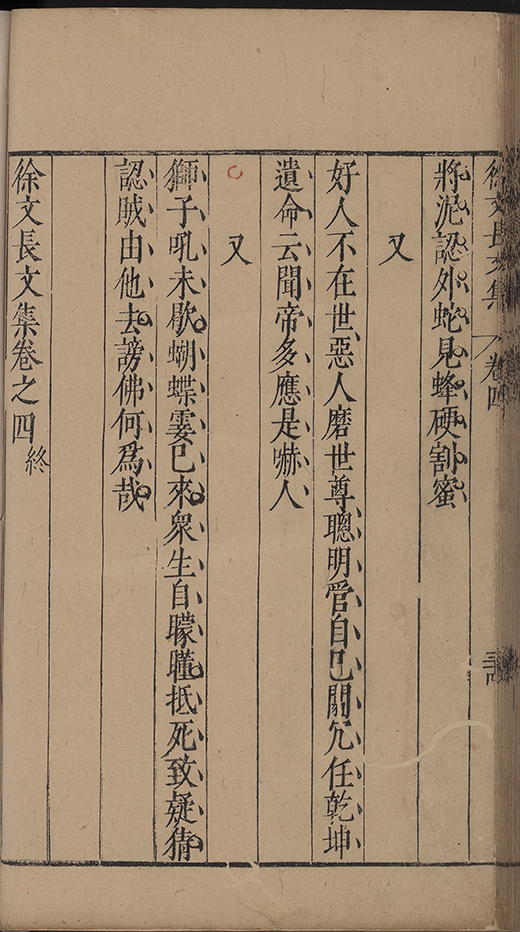 徐文長文集 卷四
將泥認外蛇見蜂硬割蜜
又
好人不在世惡人磨世尊聰明管自己鬭冗任乾坤
遺命云聞帝多應是嚇人
又
獅子吼未歇蝴蝶霎已來衆生自曚瞳抵死致疑猜
認賊由他去謗佛何爲哉
徐文長文集卷之四終